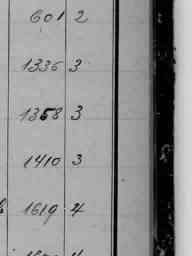 601 2
1336 3
1358 3
1410 3
1619 4